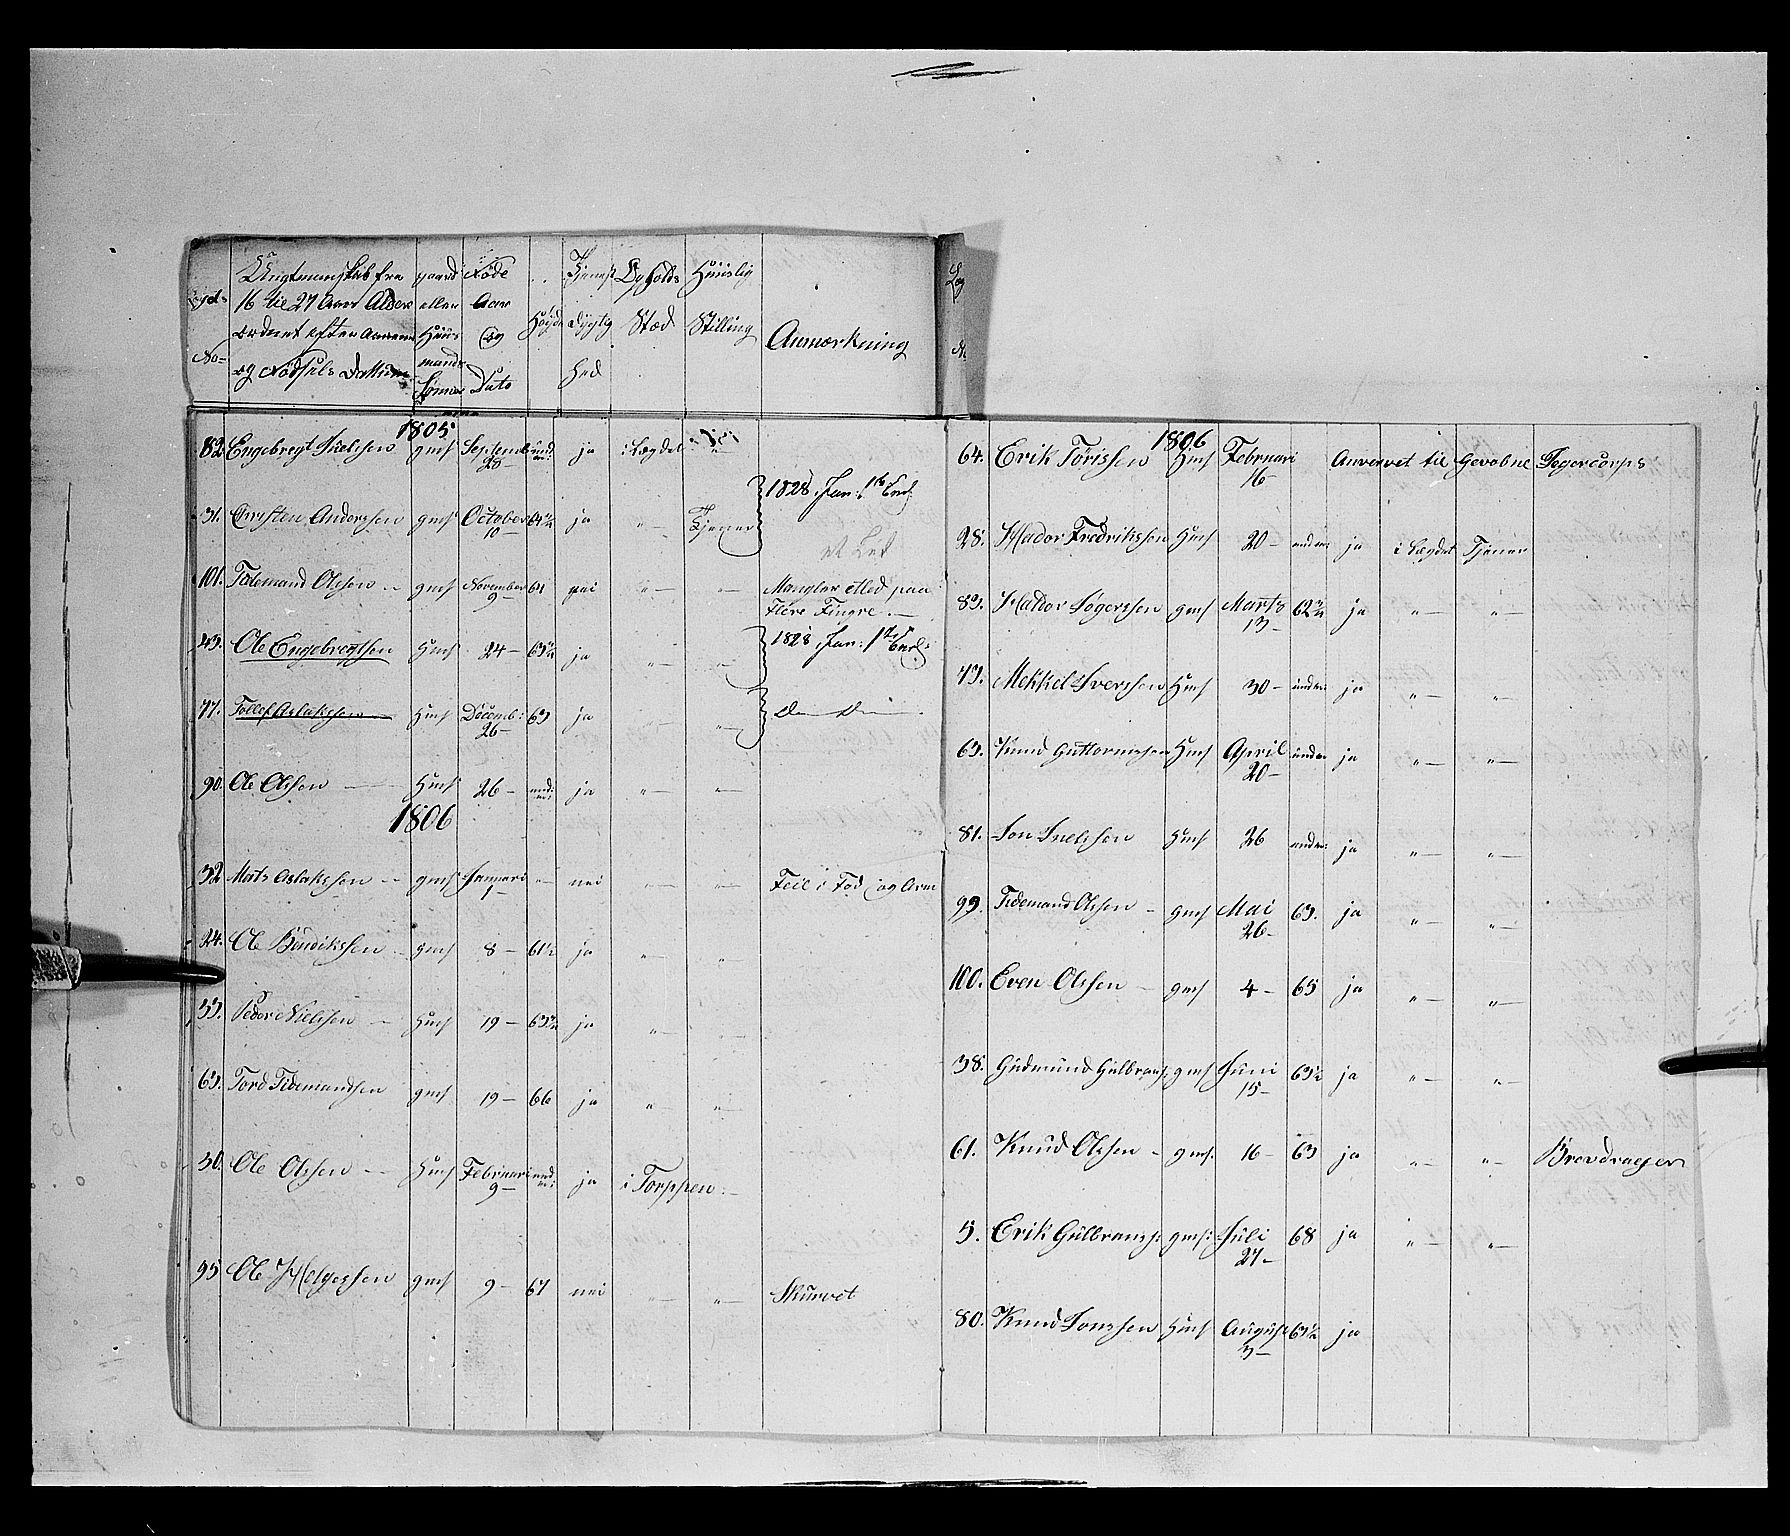 Lægds No
Ungtmandskab fra
16 til 27 Aars Alder
ordnet efter Aarene
og Fødsels Dattum
gaard eller Huusmands Sønner
Føde Aar og Dato
Høyde
Tjenest dygtighed
Opholds Stæd
Huuslig Stilling
Anmærkning
1805
82 Engebregt Nielssen gms Septemb 28 und: ja i Lægdet "
31. Crysten Anderssen gms October 10 64½ ja " Tjener 1828 Jan: 1te
101. Tidemand Olssen gms November 9 61 nei " " Mangler etled paa
flere Fingre.
43. Ole Engebregtsen Hms 24 63½ ja " " 1828 Jan: 1te
77. Tollef Aslakssen Hms Decemb: 26 63 ja " " Do Do
90. Ole Olssen Hms 26 und: ja " "
1806
32 Mats Aslakssen gms Januari 1 " nei " " Feil i Fod og Arm
24. Ole Bendikssen gms 8 61½ ja " "
33. Peder Nielssen Hms 19 63¾ ja " "
63. Tord Tidemandsen gms 19 66 ja " "
30. Ole Olssen Hms Februari 9 und: ja i Torppen
95 Ole Helgessen gms 9 67 nei " " Skurvet
Læg
No
1806
64. Erik Törissen Hms Februari 16 Anvervet til Gevorbne Jegercorps
28. Hador Fredrikssen Hms 20 under ja i Lægdet Tjener
89. Hador Ingerssen gms Marts 13 62¾ ja " "
49. Mekkel Iverssen Hms 30 under ja " "
63. Knud Guttormssen Hms April 20 under ja " "
81. Jon Nielssen Hms 26 under: ja " "
99. Tidemand Olssen gms Mai 26 63. ja " "
100. Even Olssen gms 4 65 ja " "
38. Gudmund Gulbrans: gms Juni 15 63½ ja " "
61. Knud Olssen gms: 16 63 ja " " Brevdrager
5. Erik Gulbranss: gms: Juli 27 68 ja " "
80. Knud Jonssen Hms August 3 63½ ja